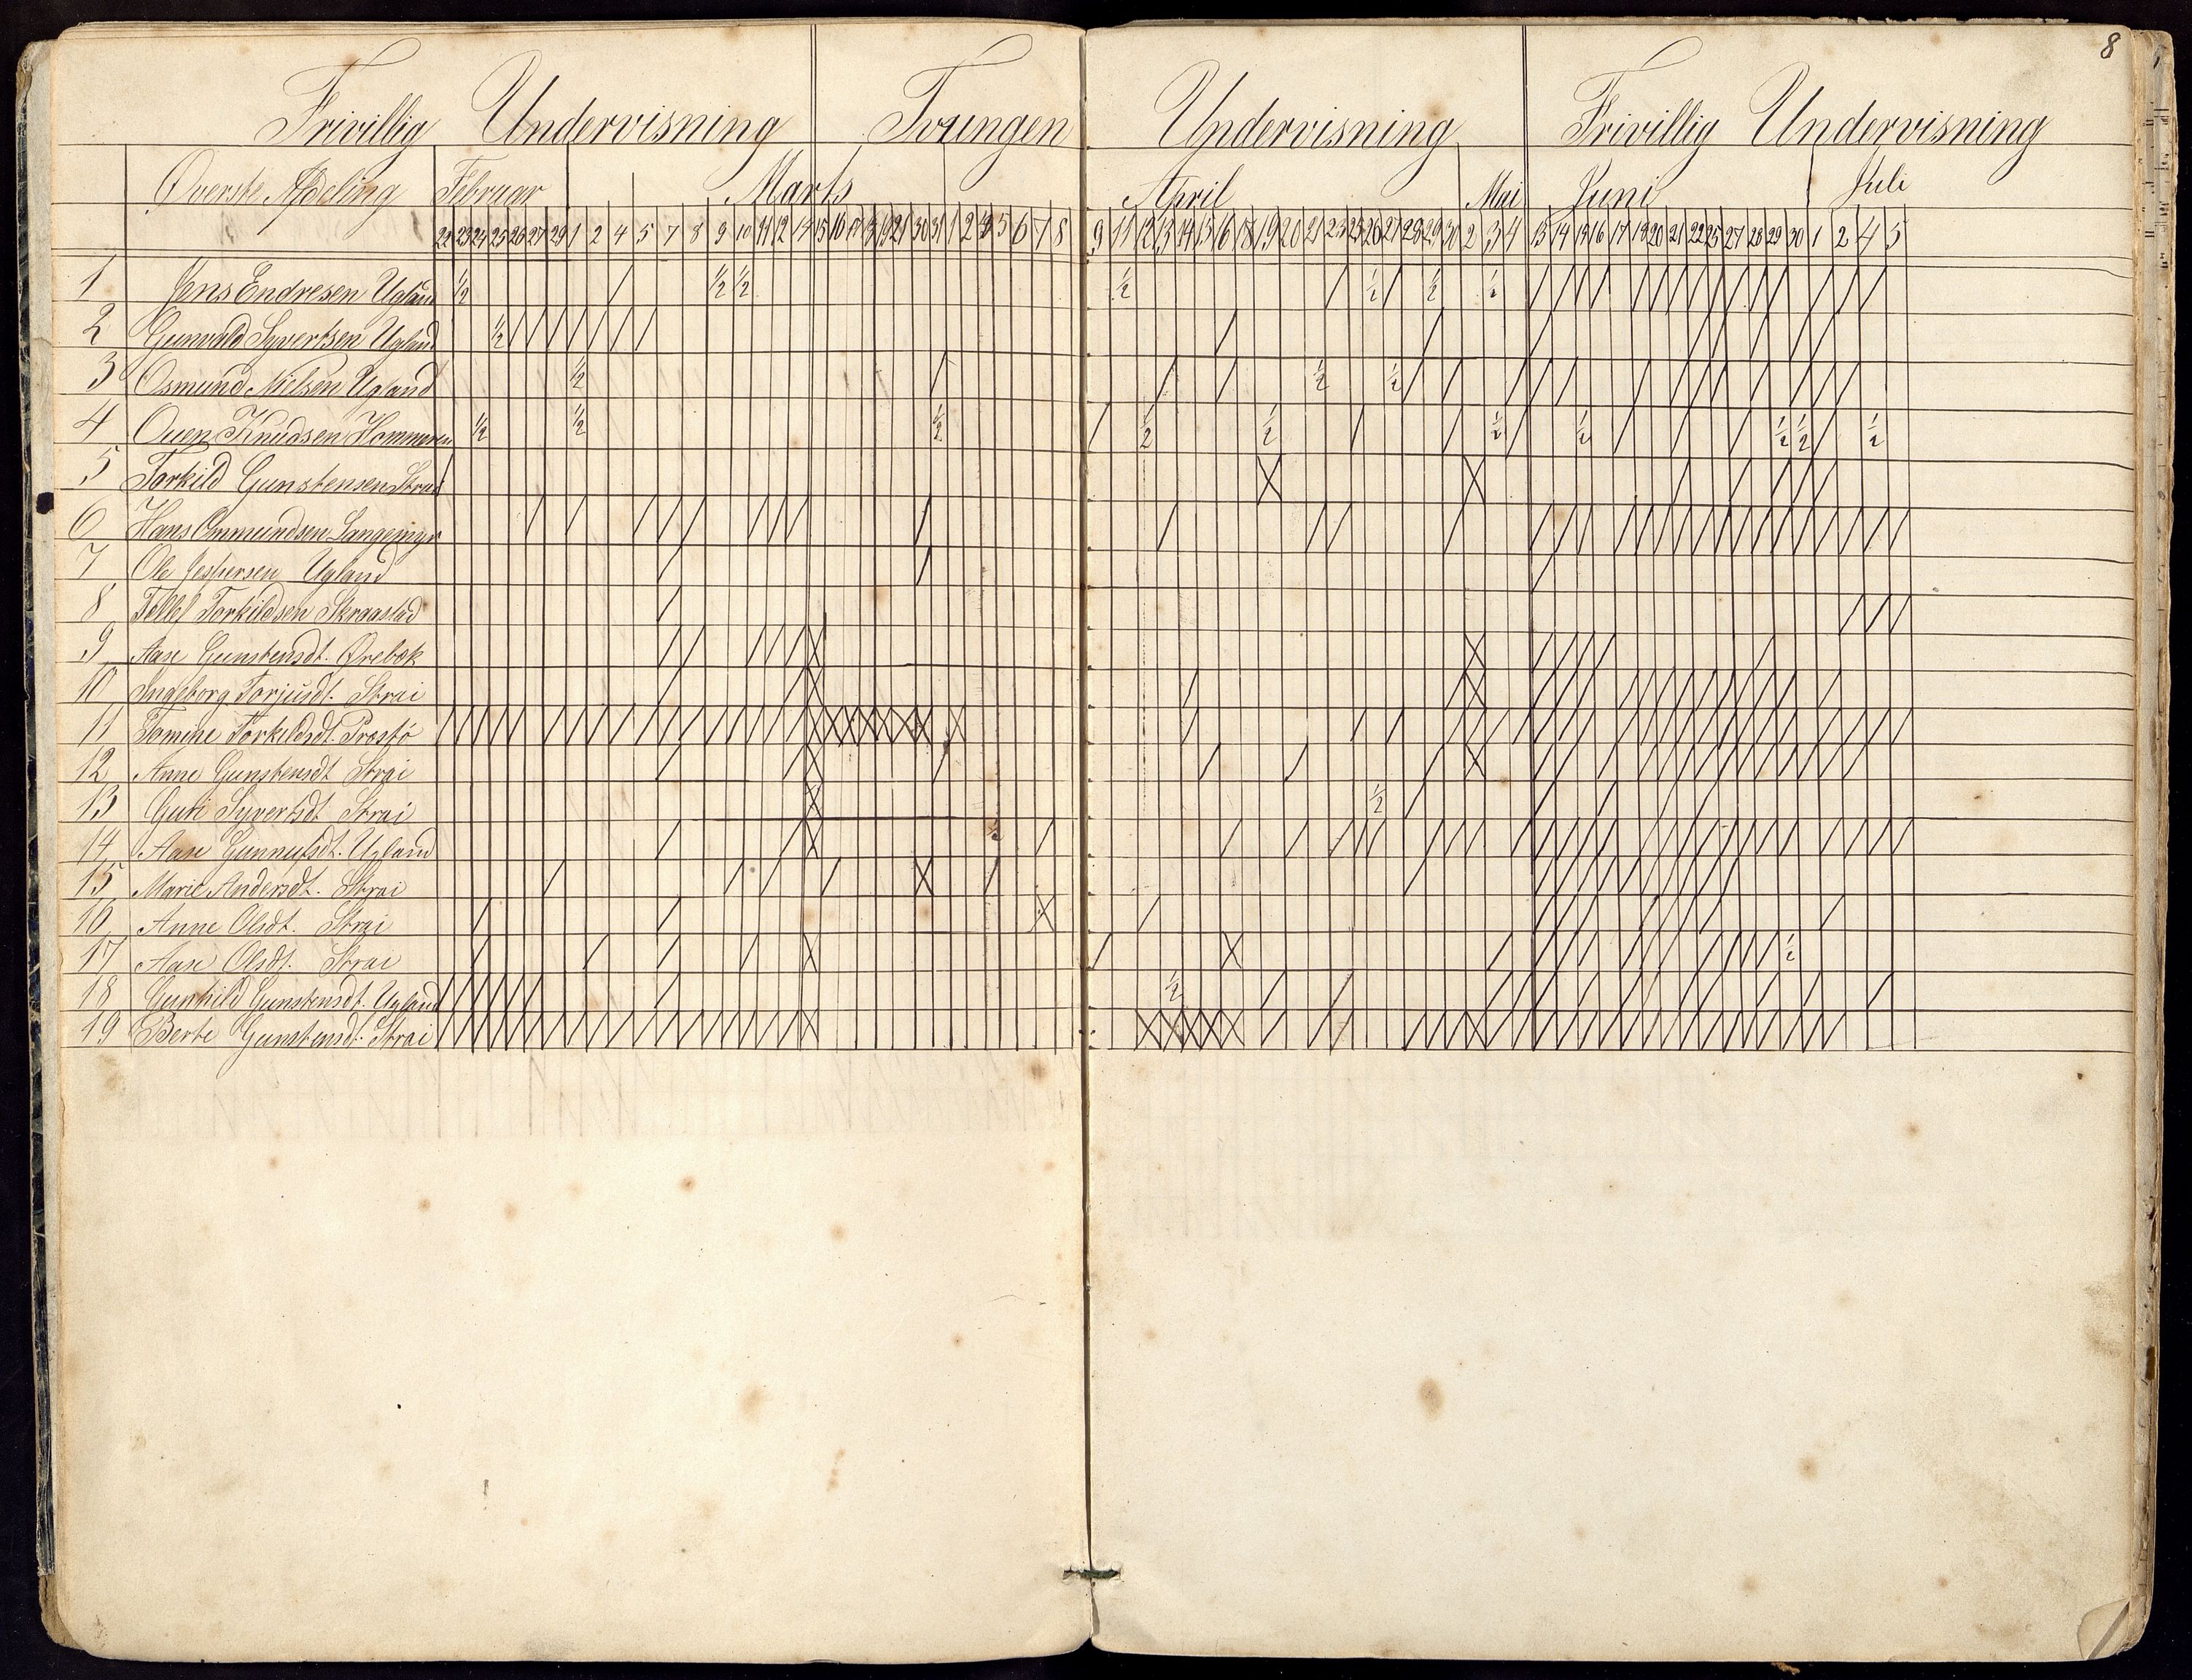 8
Frivillig Undervisning Tvungen Undervisning Frivillig Undervisning
Øverste Afdeling Februar Marts April Mai Juni Juli
22 23 24 25 26 27 29 1 2 4 5 7 8 9 10 11 12 14 15 16 17 18 19 21 30 31 1 2 4 5 6 7 8 9 11 12 13 14 15 16 18 19 20 21 23 25 26 27 28 29 30 2 3 4 13 14 15 16 17 19 20 21 22 25 27 28 29 30 1 2 4 5
1 Jens Endresen Ugland ½ ½ ½ ½ ½ ½ ½
2 Gunvald Syvertsen Ugland ½
3 Osmund Nielsen Ugland ½ ½ ½
4 Ouen Knudsen ½ ½ ½ ½ ½ ½ ½ ½ ½ ½
5 Torkild Gunstensen Strai
6 Hans Ommundsen Langemyr
7 Ole Jespersen Ugland
8 Tellef Torkildsen Skraastad
9 Aase Gunstensdt. Ørebæk
10 Ingeborg Torjusdt. Strai
11 Tomine Torkildsdt. Præstø
12 Anne Gunstensdt Strai
13 Guri Syvertsdt Strai ½
14 Aase Gunnufsdt. Ugland
15 Marie Andersdt. Strai
16 Anne Olsdt. Strai
17 Aase Olsdt. Strai ½
18 Gunhild Gunstensdt. Ugland ½
19 Berte Gunstensdt. Strai